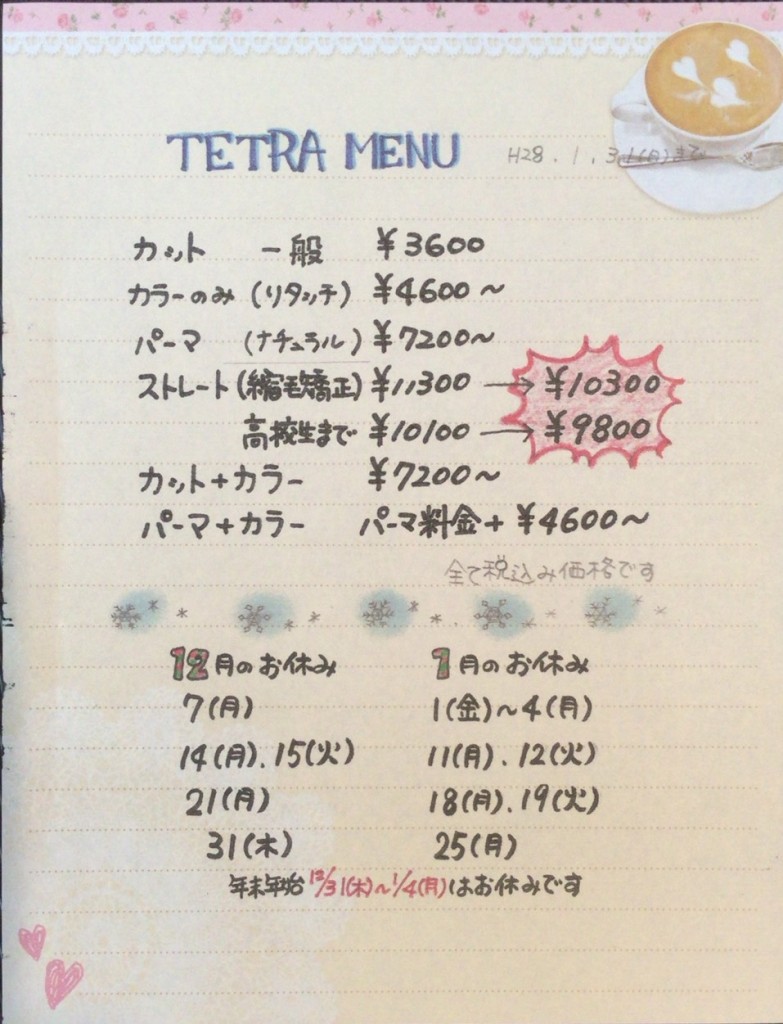 TETRA MENU H28.1.31(日)まで
カット 一般 ¥3600
カラーのみ (リタッチ) ¥4600～
パーマ (ナチュラル) ¥7200～
ストレート (縮毛矯正) ¥11300 → ¥10300
高校生まで ¥10100 → ¥9800
カット+カラー ¥7200～
パーマ+カラー パーマ料金+¥4600～
全て税込み価格です
12月のお休み
7(月)
14(月).15(火)
21(月)
31(木)
1月のお休み
1(金)～4(月)
11(月).12(火)
18(月).19(火)
25(月)
年末年始12/31(木)～1/4(月)はお休みです